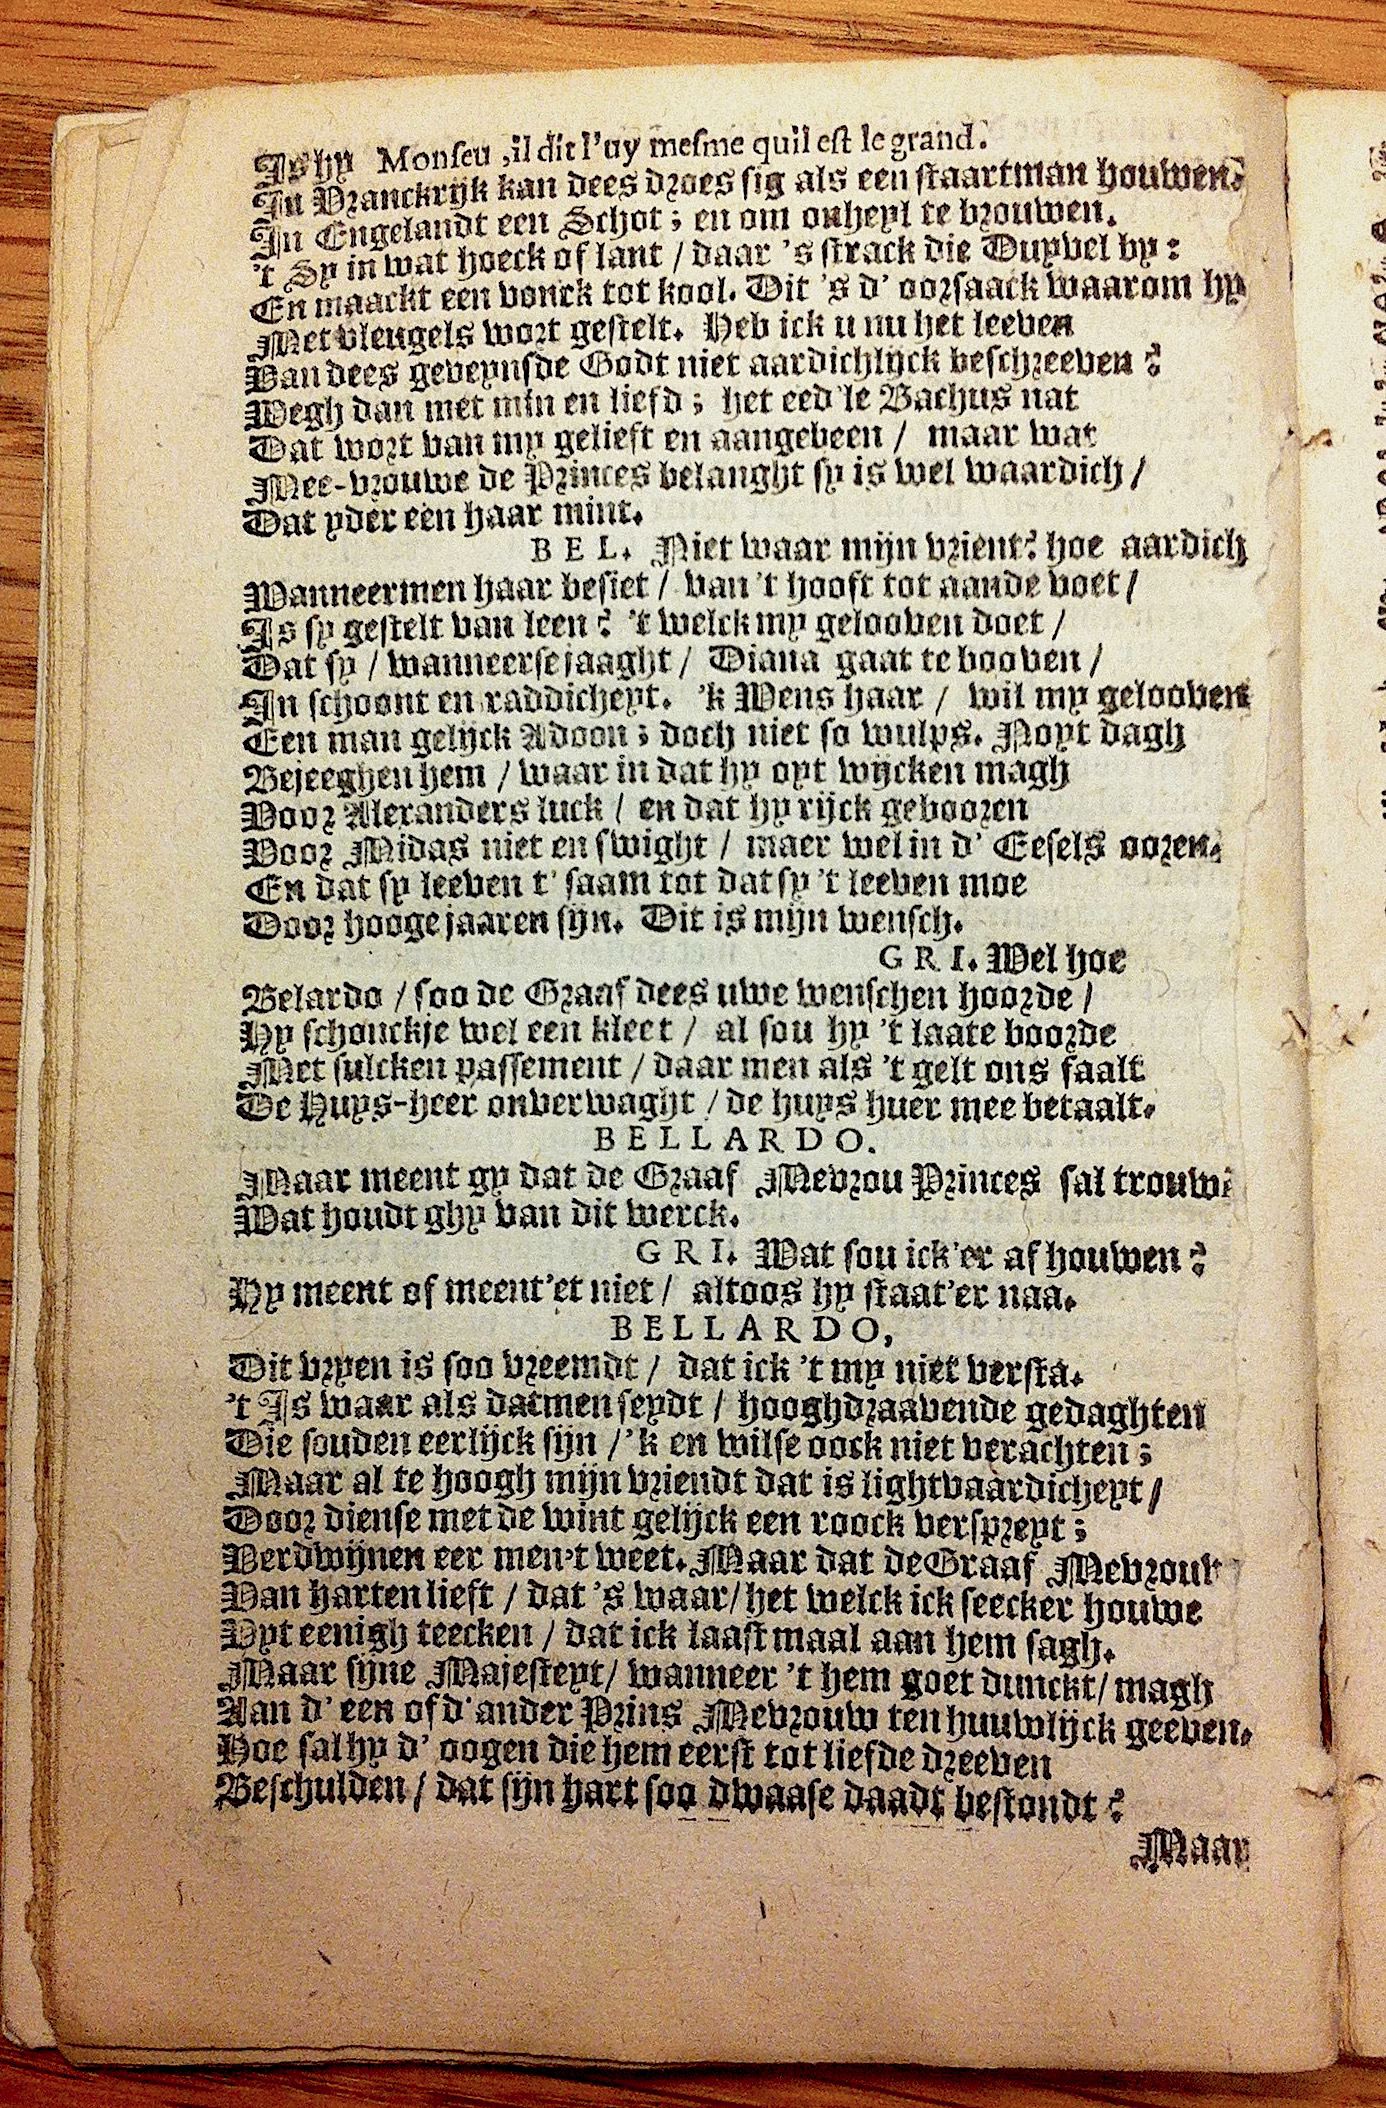 Is hy Monseu , il dit l'uy mesme qu'il est le grand.
In Vranckrijk kan dees droes sig als een staartman houwen.
In Engelandt een Schot ; en om onheyl te brouwen.
't Sy in wat hoeck of lant / daar 's strack die Duyvel by :
En maackt een vonck tot kool. Dit 's d' oorsaack waarom hy
Met vleugels wort gestelt. Heb ick u nu het leeven
Van dees geveynsde Godt niet aardichlijck beschreeven ?
Wegh dan met min en liefd ; het eed'le Bachus nat
Dat wort van my gelieft en aangebeen / maar wat
Mee-vrouwe de Princes belanght sy is wel waardich /
Dat yder een haar mint.
BEL. Niet waar mijn vrient? hoe aardich
Wanneermen haar besiet / van 't hooft tot aande voet /
Is sy gestelt van leen ? 't welck my gelooven doet /
Dat sy / wanneerse jaaght / Diana gaat te booven /
In schoont en raddicheyt. 'k Wens haar / wil my gelooven
Een man gelijck Adoon ; doch niet so wulps. Noyt dagh
Bejeeghen hem / waar in dat hy oyt wijcken magh
Voor Alexanders luck / en dat hy rijck gebooren
Voor Midas niet en swight / maer wel in d' Eesels ooren.
En dat sy leeven t' saam tot dat sy 't leeven moe
Door hooge jaaren sijn. Dit is mijn wensch.
GRI. Wel hoe
Belardo / soo de Graaf dees uwe wenschen hoorde /
Hy schonckje wel een kleet / al sou hy 't laate boorde
Met sulcken passement / daar men als 't gelt ons faalt
De Huys-heer onverwaght / de huys huer mee betaalt.
BELLARDO.
Maar meent gy dat de Graaf Mevrou Princes sal trouwē
Wat houdt ghy van dit werck.
GRI. Wat sou ick'er af houwen ?
Hy meent of meent'et niet / altoos hy staat'er naa.
BELLARDO,
Dit vryen is soo vreemdt / dat ick 't my niet versta.
't Is waar als datmen seydt / hooghdraavende gedaghten
Die souden eerlijck sijn / 'k en wilse oock niet verachten ;
Maar al te hoogh mijn vriendt dat is lightvaardicheyt /
Door diense met de wint gelijck een roock verspreyt ;
Verdwijnen eer men't weet. Maar dat de Graaf Mevrouw
Van harten lieft / dat 's waar / het welck ick seecker houwe
Uyt eenigh teecken / dat ick laastmaal aan hem sagh.
Maar sijne Majesteyt / wanneer 't hem goet dunckt / magh
Aan d' een of d' ander Prins Mevrouw ten huuwlijck geeven.
Hoe sal hy d' oogen die hem eerst tot liefde dreeven
Beschulden / dat sijn hart soo dwaase daadt bestondt ?
Maar